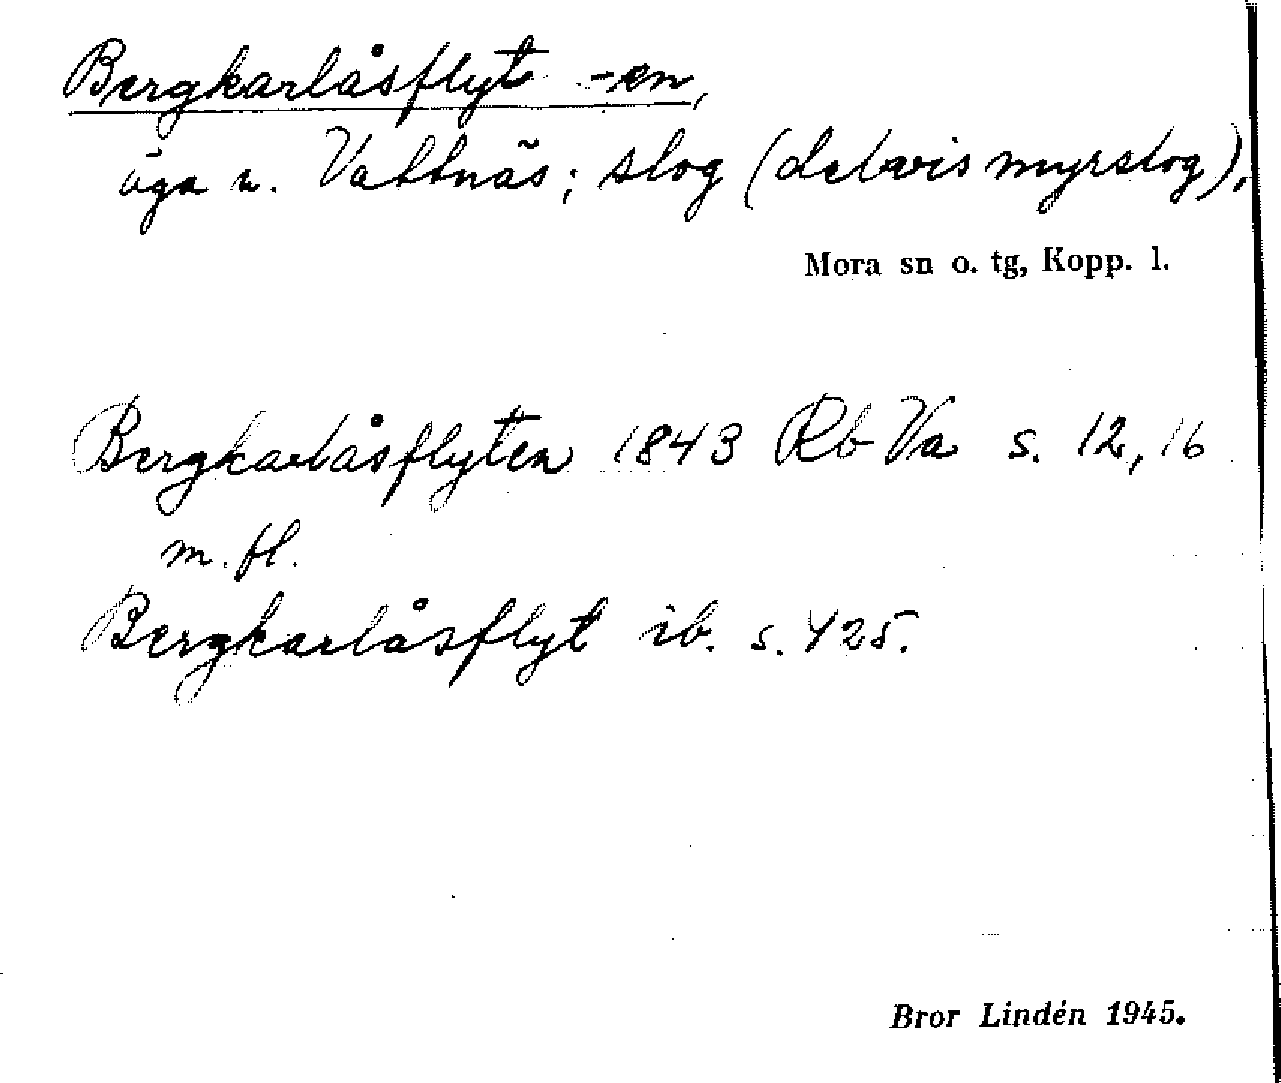 Bergkarlåsflyt -en,
äga u. Vattnäs; slog (delvis myrslog).
Mora sn o. tg, Kopp. l.
Bergkarlåsflyten 1843 Rb Va s. 12, 16
m. fl.
Bergkarlåsflyt ib. s. 425.
Bror Lindén 1945.